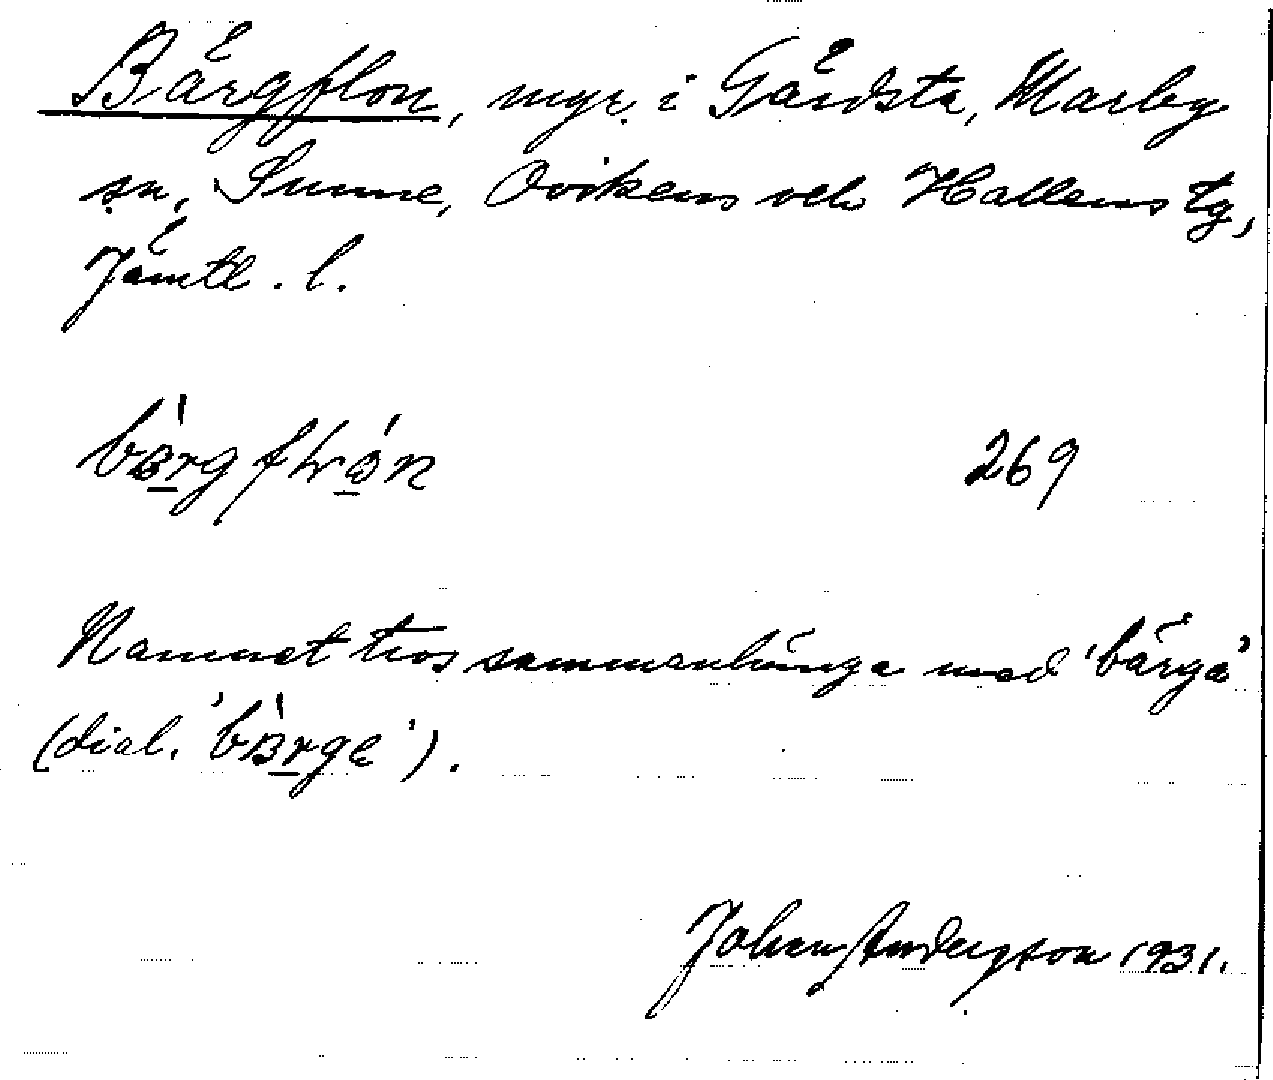 Bärgflon, myr i Gärdsta, Marby
sn, Sunne, Ovikens och Hallens tg,
Jämtl. l.
269
Namnet tros sammanhänga med 'bärga'
(dial. ' ').
Johan Andersson 1931.